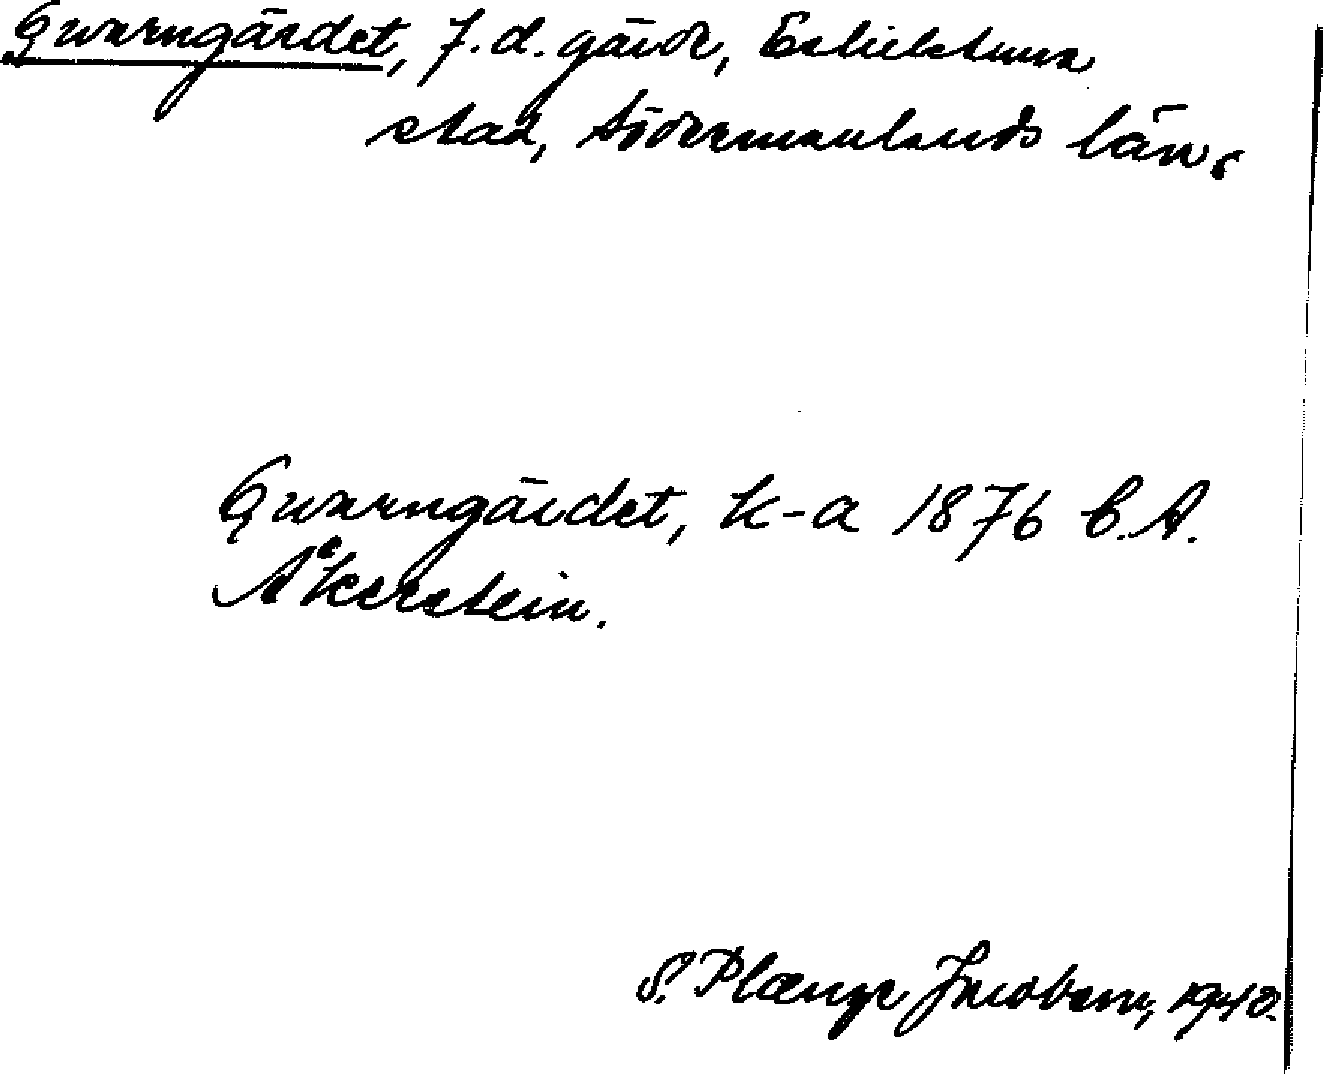 Qwarngärdet, f.d. gård, Eskilstuna
stad, Södermanlands län.
Qwarngärdet, k-a 1876 C. A.
Åkerstein.
S. Plænge Jacobson, 1940.